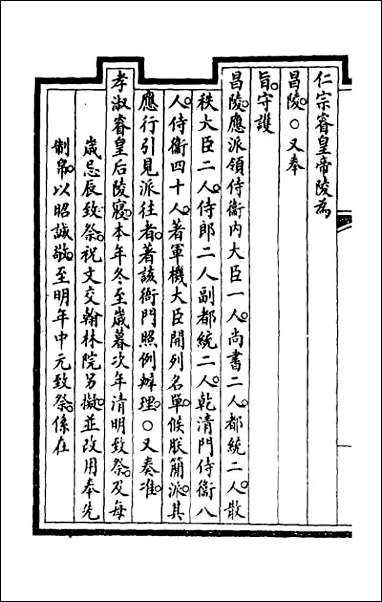 仁宗睿皇帝陵為
昌陵。○又奉
旨。守護
昌陵。應派領侍衛內大臣一人。尚書二人。都統二人。散
秩大臣二人。侍郎二人。副都統二人。乾清門侍衛八
人。侍衛四十人。著軍機大臣開列名單。候朕簡派。其
應行引見派往者。著該衙門照例辦理。○又奏准。
孝淑睿皇后陵寢。本年冬至歲暮次年清明致祭。及每
歲忌辰致祭。祝文交翰林院另擬。並改用奉先
制帛。以昭誠敬。至明年中元致祭。係在